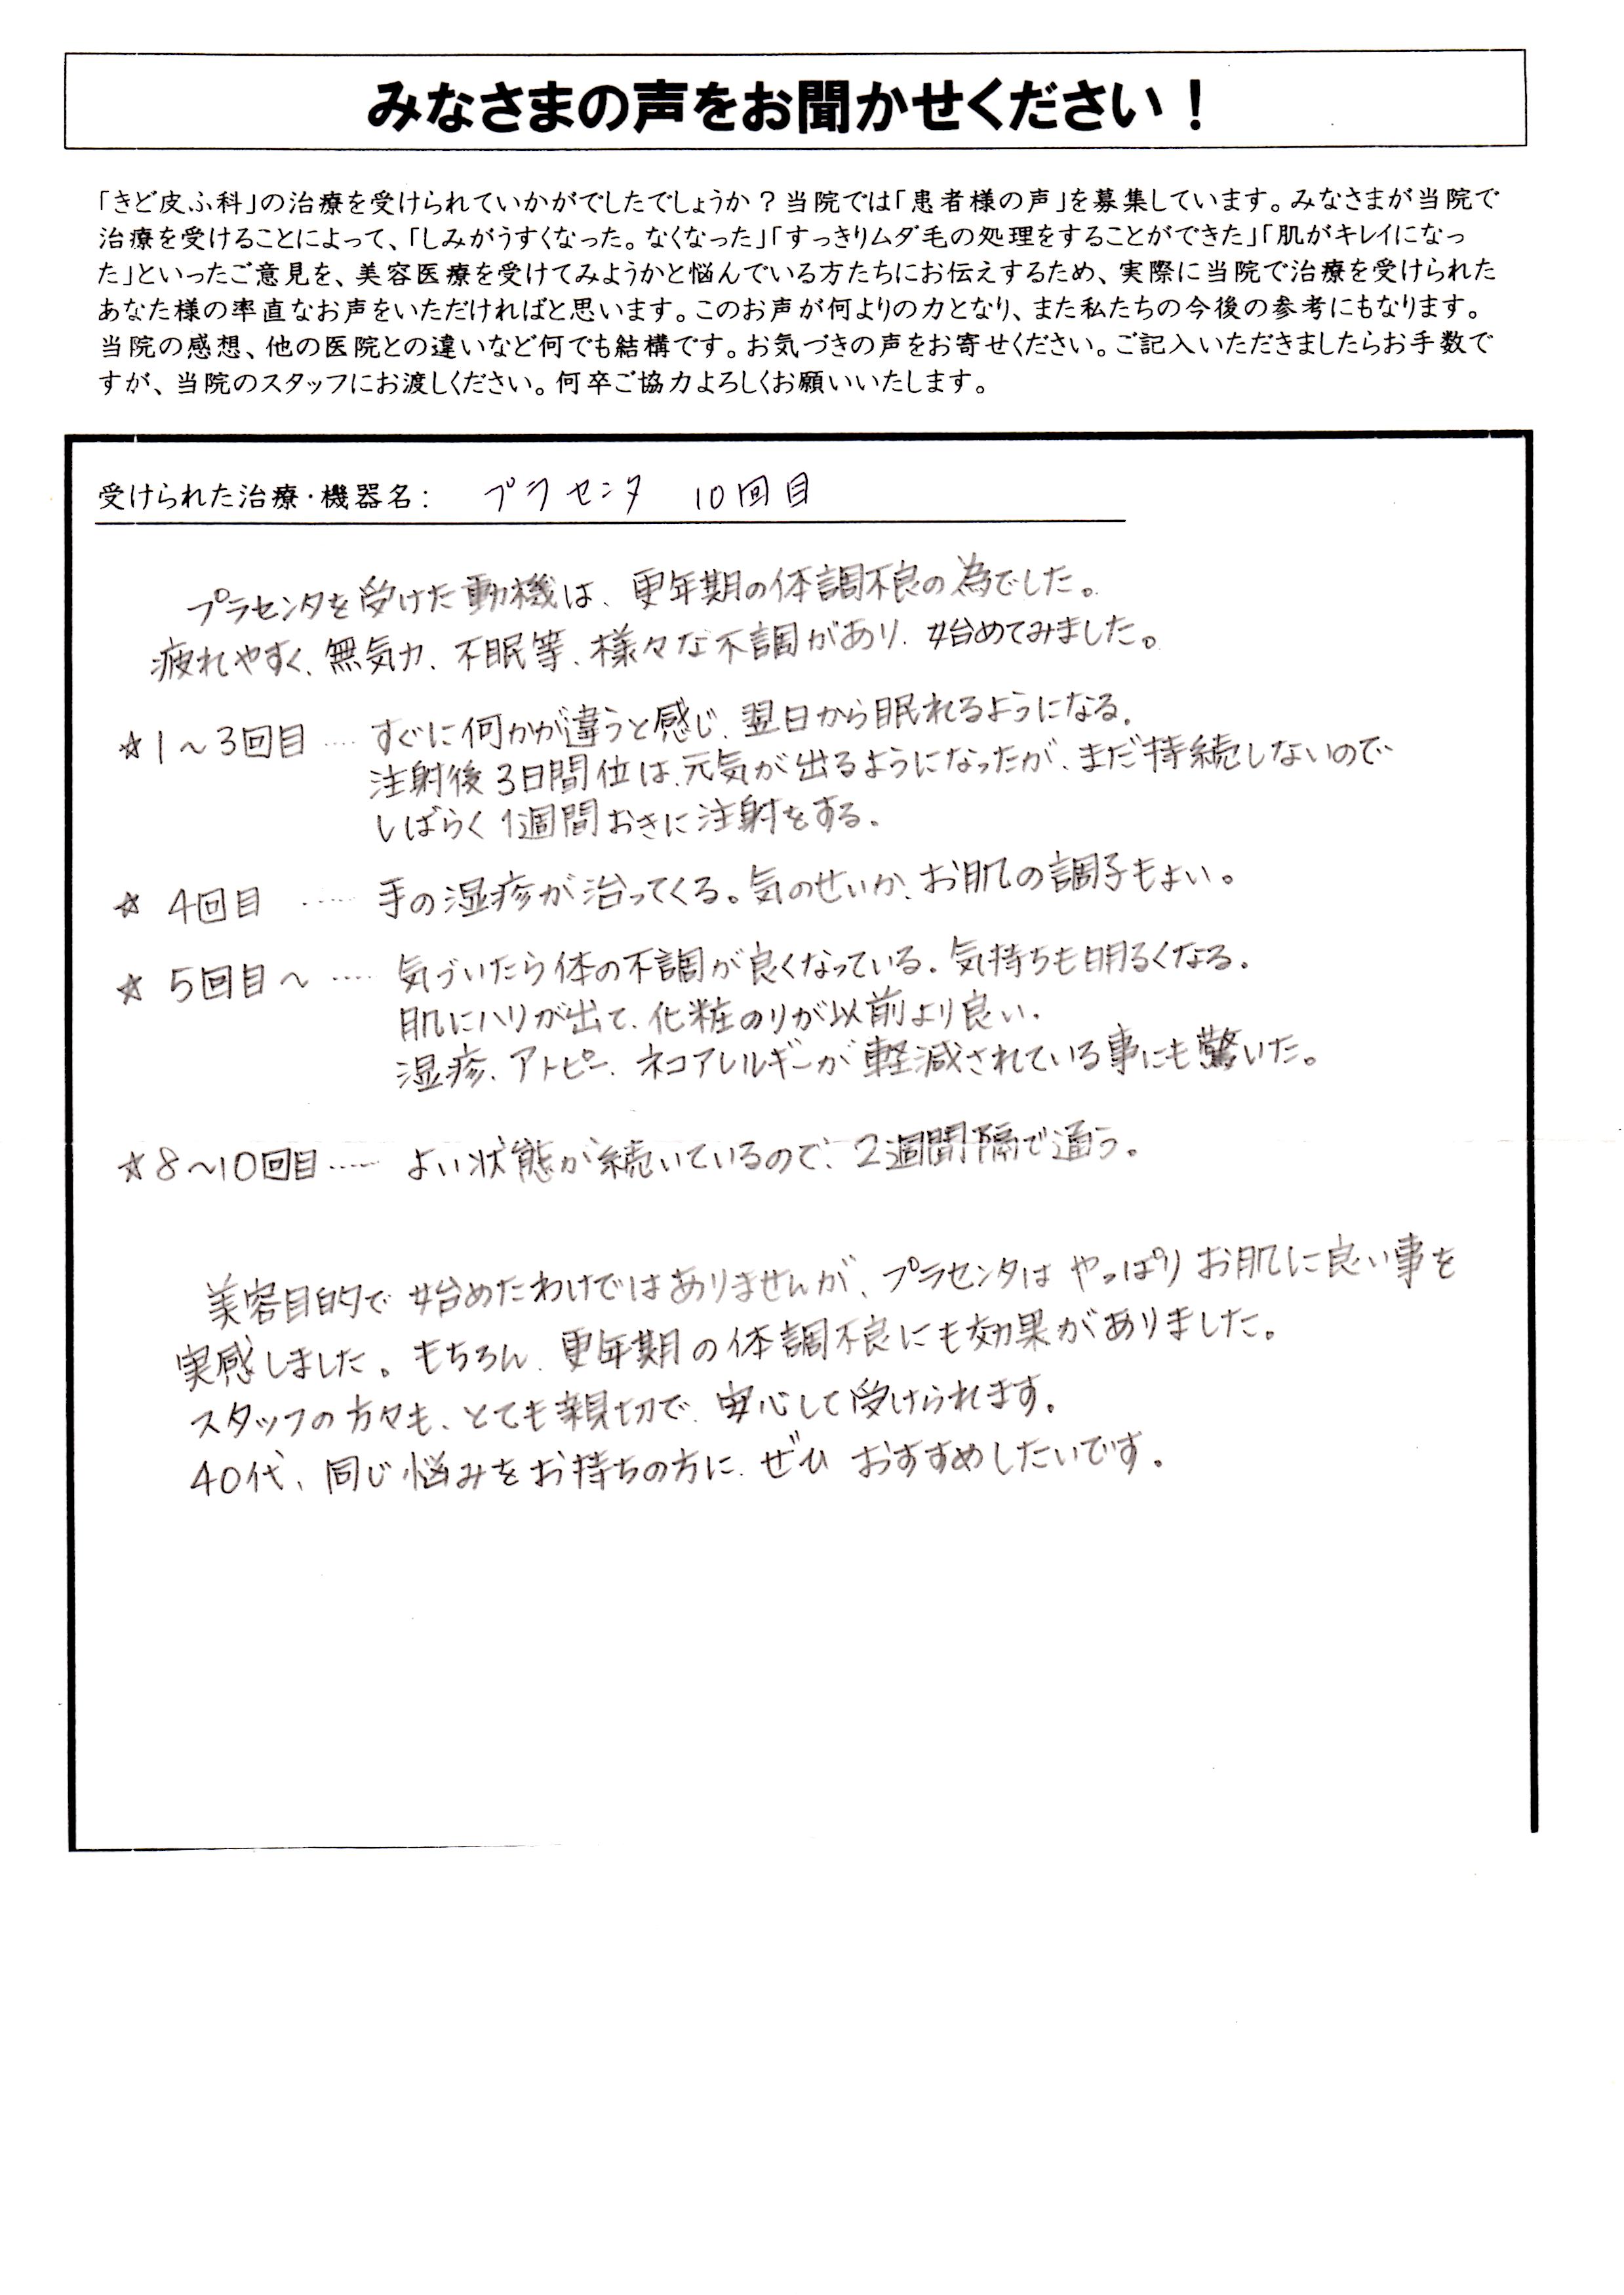 みなさまの声をお聞かせください！
「きど皮ふ科」の治療を受けられていかがでしたでしょうか？当院では「患者様の声」を募集しています。みなさまが当院で
治療を受けることによって、「しみがうすくなった。なくなった」「すっきりムダ毛の処理をすることができた」「肌がキレイになっ
た」といったご意見を、美容医療を受けてみようかと悩んでいる方たちにお伝えするため、実際に当院で治療を受けられた
あなた様の率直なお声をいただければと思います。このお声が何よりの力となり、また私たちの今後の参考にもなります。
当院の感想、他の医院との違いなど何でも結構です。お気づきの声をお寄せください。ご記入いただきましたらお手数で
すが、当院のスタッフにお渡しください。何卒ご協力よろしくお願いいたします。
受けられた治療・機器名： プラセンタ 10回目
プラセンタを受けた動機は、更年期の体調不良の為でした。
疲れやすく、無気力、不眠等、様々な不調があり、始めてみました。
☆1～3回目 …… すぐに何かが違うと感じ、翌日から眠れるようになる。
注射後3日間位は、元気が出るようになったが、まだ持続しないので
しばらく1週間おきに注射をする。
☆ 4回目 …… 手の湿疹が治ってくる。気のせいか、お肌の調子もよい。
☆ 5回目～ …… 気づいたら体の不調が良くなっている。気持ちも明るくなる。
肌にハリが出て、化粧のりが以前より良い。
湿疹、アトピー、ネコアレルギーが軽減されている事にも驚いた。
☆8～10回目…… よい状態が続いているので、2週間隔で通う。
美容目的で始めたわけではありませんが、プラセンタはやっぱりお肌に良い事を
実感しました。もちろん、更年期の体調不良にも効果がありました。
スタッフの方々も、とても親切で、安心して受けられます。
40代、同じ悩みをお持ちの方に、ぜひ おすすめしたいです。